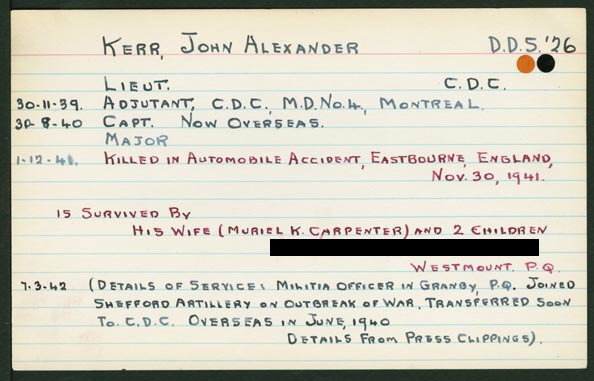 KERR, JOHN ALEXANDER D.D.S.'26
LIEUT. C.D.C.
30-11-39. ADJUTANT, C.D.C., M.D.NO.4, MONTREAL.
30-8-40 CAPT. NOW OVERSEAS.
MAJOR
1-12-41. KILLED IN AUTOMOBILE ACCIDENT, EASTBOURNE, ENGLAND,
NOV. 30, 1941.
IS SURVIVED BY
HIS WIFE (MURIEL K. CARPENTER) AND 2 CHILDREN
WESTMOUNT. P.Q.
7-3-42 (DETAILS OF SERVICE: MILITIA OFFICER IN GRANBY, P.Q. JOINED
SHEFFORD ARTILLERY ON OUTBREAK OF WAR, TRANSFERRED SOON
TO C.D.C. OVERSEAS IN JUNE, 1940
DETAILS FROM PRESS CLIPPINGS).